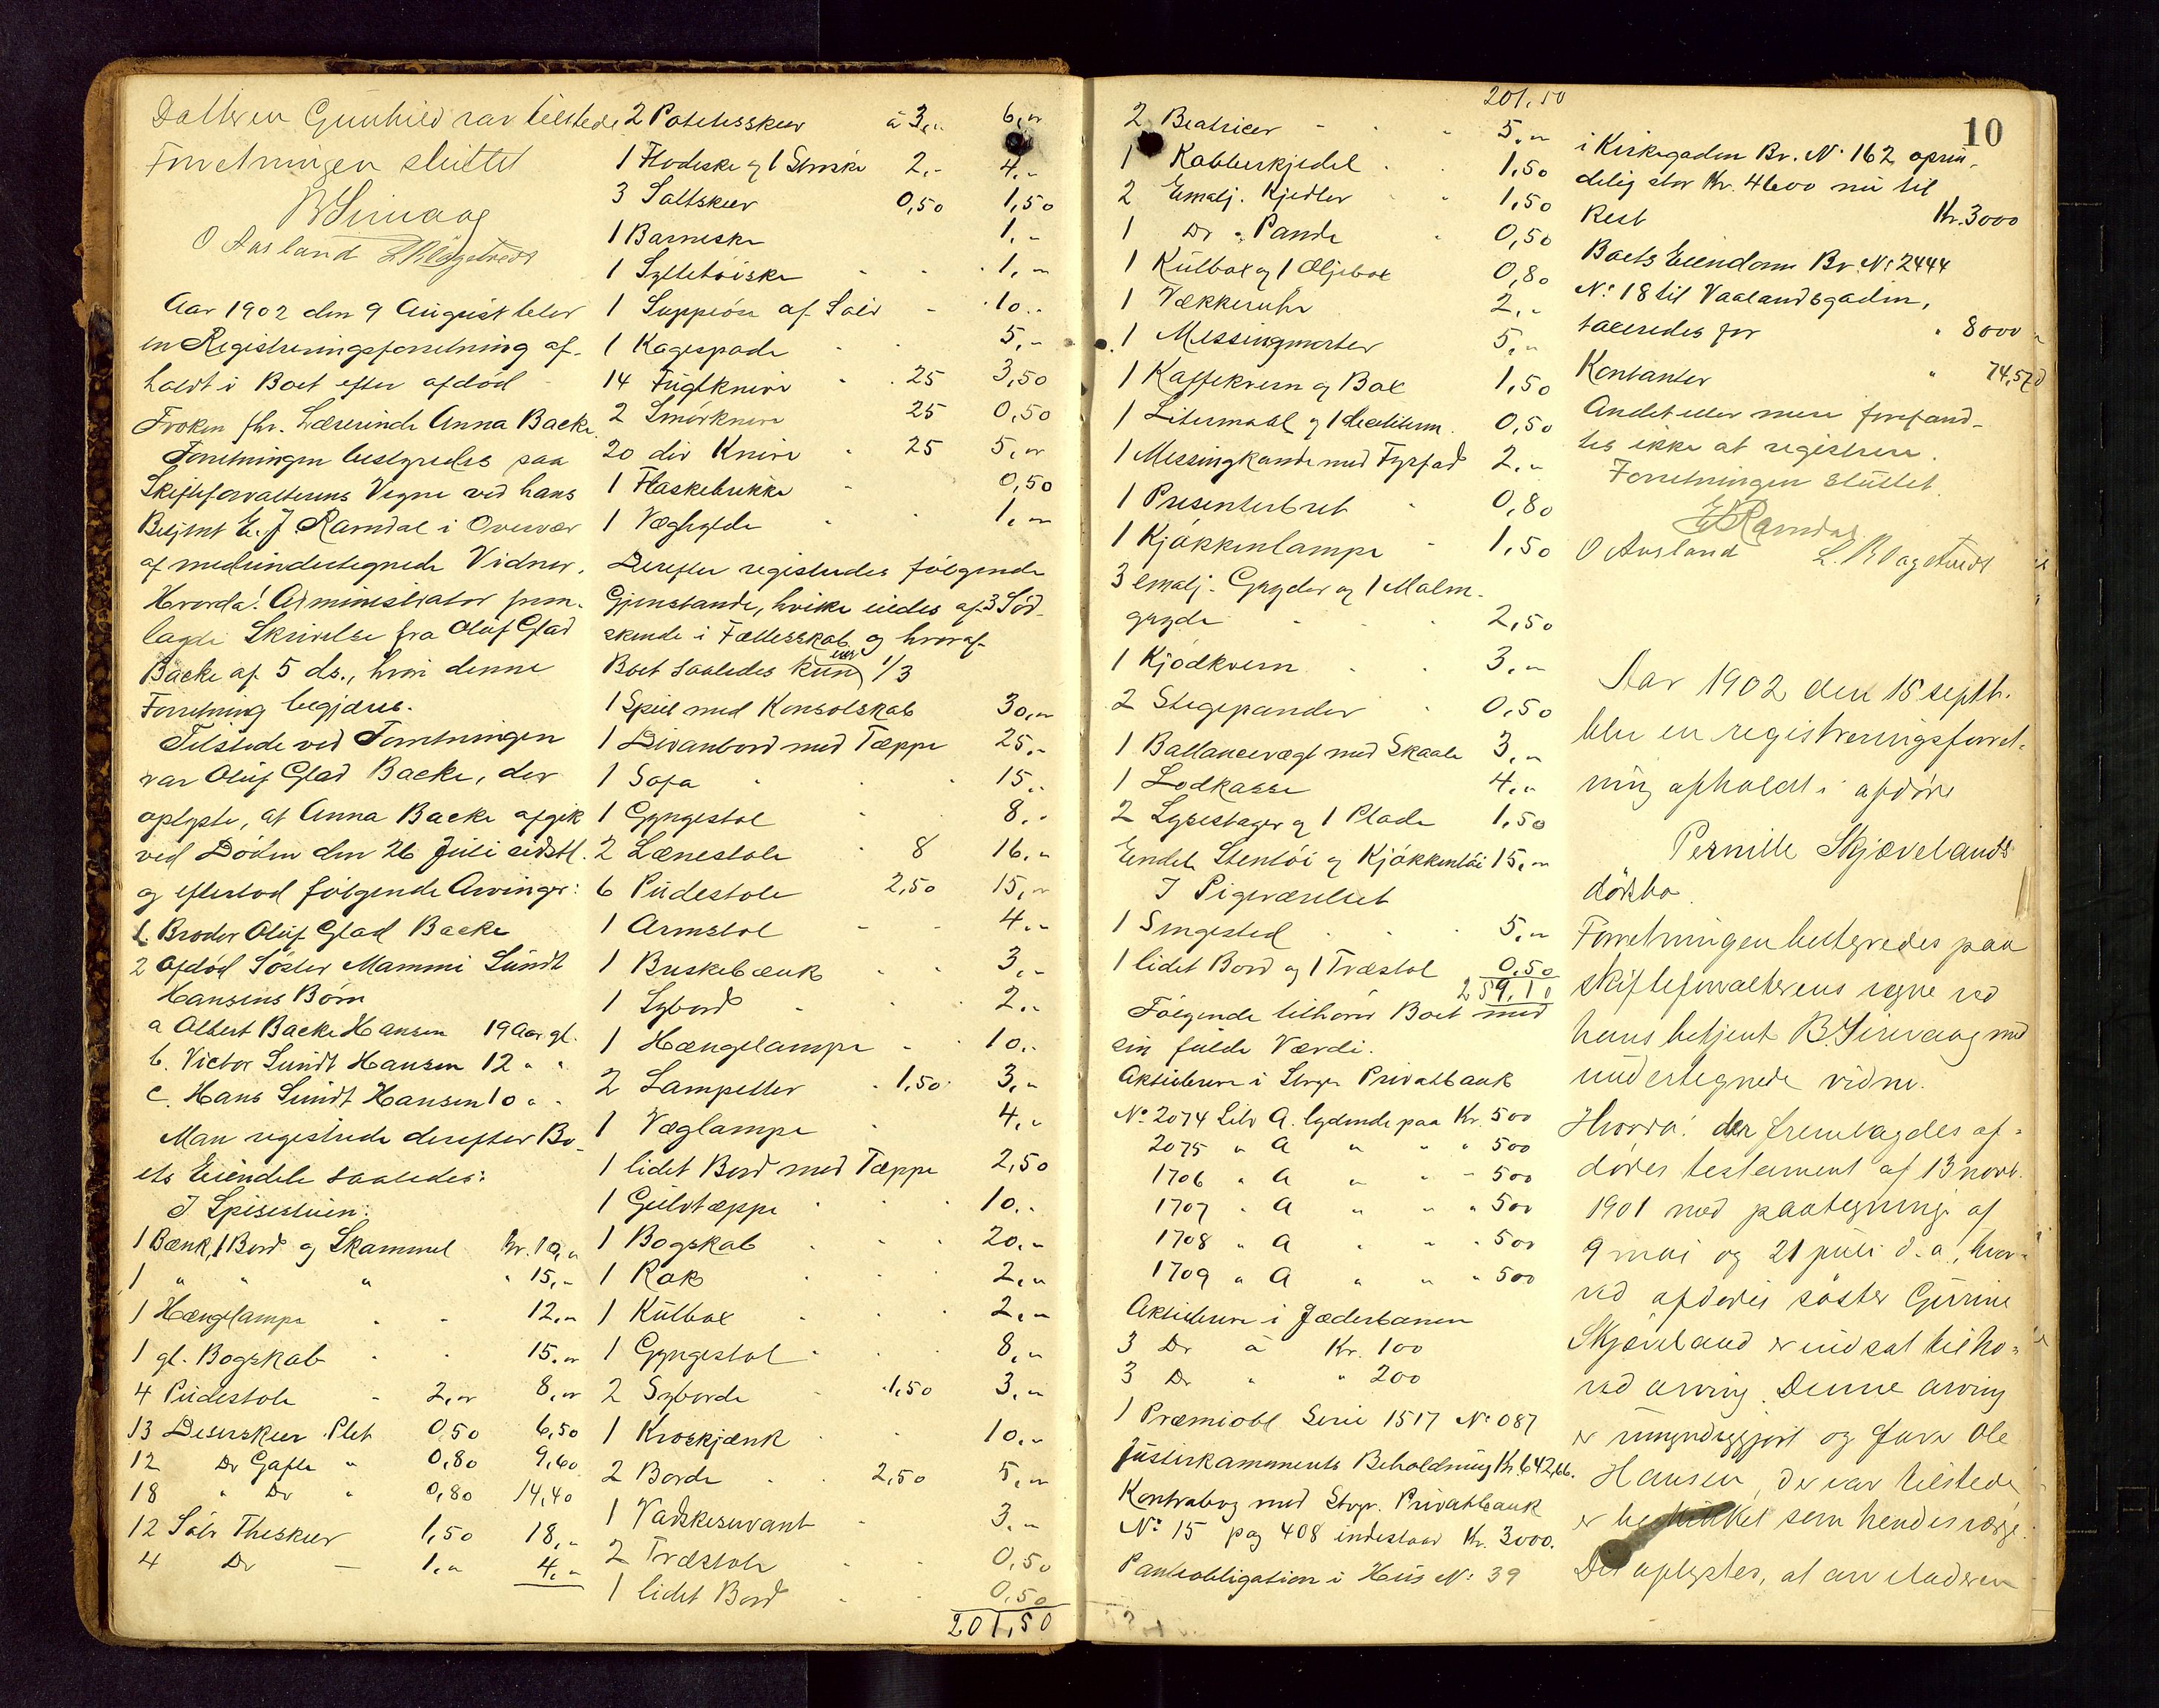 Datteren Gunhild var tilstede
Forretningen sluttet
B Sirevaag
O Ausland
Aar 1902 den 9 August blev
en Registreringsforretning af-
holdt i Boet efter afdød
Frøken fhv. Lærerinde Anna Backe.
Forretningen bestyredes paa
Skifteforvalterens Vegne ved hans
Betjent E. J Ramdal i Overvær
af medundertegnede Vidner.
Hvorda! Administrator frem-
lagde Skrivelse fra Oluf Glad
Backe af 5 ds., hvori denne
Forretning begjæres.
Tilstede ved Forretningen
var Oluf Glad Backe, der
oplyste, at Anna Backe afgik
ved Døden den 26 Juli sidstl.
og efterlod følgende Arvinger:
1. Broder Oluf Glad Backe
2 Afdød Søster Mammi Lundt
Hansens Børn
a Albert Backe Hansen 19 Aar gl.
b. Victor Lundt Hansen 12 " "
c. Hans Lundt Hansen 10 " "
Man registrede derefter Bo-
ets Eiendele saaledes:
I Spisestuen:
1 Bænk, 1 Bord og Skammel Kr. 10,"
1 " " " " 15,-
1 Hænglampe 12,"
1 gl. Bogskab 15,"
4 Pudestole 2," 8,"
13 Desertskeer Plet 0,50 6,50
12 Do Gafle " 0,80 9,60
18 " Do " 0,80 14,40
12 Sølv Theskeer 1,50 18,"
4 Do 1," 4,"
2 Potetesskeer à 3," 6,"
1 Flødeske og 1 2,- 4,-
3 Saltskeer 0,50 1,50
1 Barneske 1,-
1 Syltetøiske 1,"
1 Suppeøse af Sølv 10,-
1 Kagespade 5,-
14 Frugtknive 25 3,50
2 Smørknive 25 0,50
20 div Knive 25 5,"
1 Flaskebrikke 0,50
1 Væghylde 1,"
Derefter registredes følgende
Gjenstande, hvilke eiedes af 3 Sød-
skende i Fællesskab og hvoraf
Boet saaledes kun eier 1/3
1 Speil med Konsolskab 30,"
1 Divanbord med Tæppe 25,-
1 Sofa 15,-
1 Gyngestol 8,-
2 Lænestole 8 16,"
6 Pudestole 2,50 15,"
1 Armstol 4,"
1 Buskebænk 3,-
1 Sybord 2,-
1 Hængelampe 10,-
2 Lampetter 1,50 3,"
1 Væglampe 4,"
1 lidet Bord med Tæppe 2,50
1 Gulvtæppe 10,-
1 Bogskab 20,"
1 Rak 2,"
1 Kulbox 2,"
1 Gyngestol 8,"
2 Syborde 1,50 3,"
1 Kroskjænk 10,-
2 Borde 2,50 5,"
1 Vadskeservant 3,-
2 Træstole 0,50
1 lidet Bord 0,50
201,50
201,50
2 Beatricer 5,"
1 Kobberkjedel 1,50
2 Emalj. Kjedler 1,50
1 Do Pande 0,50
1 Kulbox og 1 Oljebox 0,80
1 Vækkeruhr 2,-
1 Messingmorter 5,"
1 Kaffekvern og Box 1,50
1 Litermaal og 1 0,50
1 Messingkande med Fyrfad 2,-
1 Presenterbret 0,80
1 Kjøkkenlampe 1,50
3 emalj. Gryder og 1 Malm-
gryde 2,50
1 Kjødkvern 3,"
2 Stegepander 0,50
1 Ballancevægt med Skaale 3,"
1 Lodkasse 4,"
2 Lysestager og 1 Plade 1,50
Endel Stentøi og Kjøkkentøi 15,"
I Pigeværelset
1 Sengested 5,"
1 lidet Bord og 1 Træstol 0,50
259,10
Følgende tilhører Boet med
sin fulde Værdi.
Aktiebreve i Stvgr Privatbank
No 2074 Litr A. lydende paa Kr. 500
2075 " A " " " 500
1706 " A " " " 500
1707 " A " " " 500
1708 " A " " " 500
1709 " A " " " 500
Aktiebreve i Jæderbanen
3 Do à Kr. 100
3 Do " " 200
1 Præmiobl Serie 1517 No 087
Beholdning Kr 642,66.
Kontrabog med Stvgr. Privatbank
No 15 pag 408 indestaar Kr. 3000.
Panteobligation i Hus No 39
10
i Kirkegaden Br. No 162 oprin-
delig stor Kr. 4600 nu til
Rest Kr. 3000
Boets Eiendom Br. No 2444
No 18 til Vaalandsgaden,
taxeredes for " 8000 "
Kontanter " 74,57
Andet eller mere forefand-
tes ikke at registrere.
Forretningen sluttet.
E J Ramdal
O Ausland
Aar 1902 den 15 septb.
blev en registreringsforret-
ning afholdt i afdøde
Pernille Skjævelands
dødsbo.
Forretningen bestyredes paa
skifteforvalterens vegne ved
hans betjent B. Sirevaag med
undertegnede vidner.
Hvorda! der fremlagdes af-
dødes testament af 13 novb.
1901 med paategning af
9 mai og 21 juli d. a., hvor-
ved afdødes søster Gurine
Skjæveland er indsat til ho-
ved arving. Denne arving
er umyndiggjort og
Hansen, der var tilstede
er beskikket som hendes værge.
Det oplystes, at